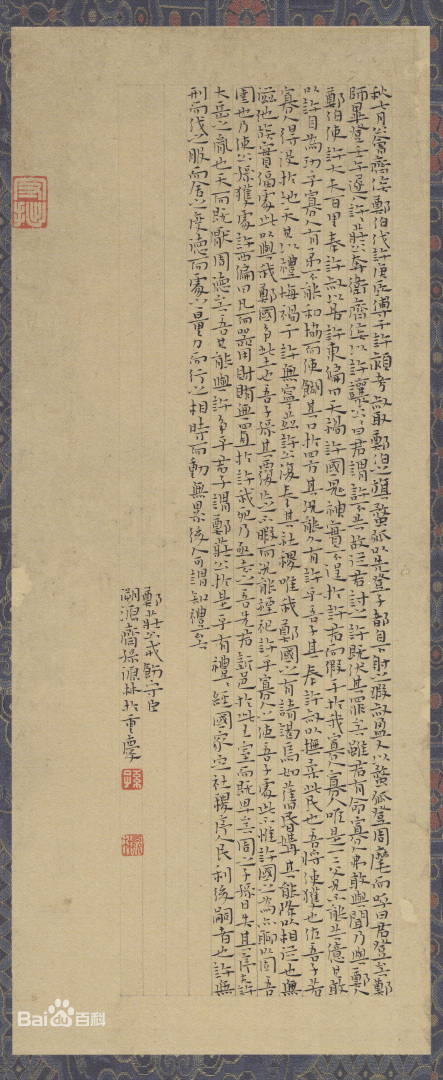 秋七月公會齊侯鄭伯伐許庚辰傅于許潁考叔取鄭伯之旗蝥弧以先登子都自下射之瑕叔盈又以蝥弧登周麾而呼曰君登矣鄭
師畢登壬午遂入許莊公奔衛齊侯以許讓公公曰君謂許不共故從君討之許既伏其罪矣雖君有命寡人弗敢與聞乃與鄭人
鄭伯使許大夫百里奉許叔以居許東偏曰天禍許國鬼神實不逞于許君而假手于我寡人寡人唯是一二父兄不能共億其敢
以許自為功乎寡人有弟不能和協而使餬其口於四方其況能久有許乎吾子其奉許叔以撫柔此民也吾將使獲也佐吾子若
寡人得沒於地天其以禮悔禍于許無寧茲許公復奉其社稷唯我鄭國之有請謁焉如舊昏媾其能降以相從也無
滋他族實偪處此以與我鄭國爭此土也吾子孫其覆亡之不暇而況能禋祀許乎寡人之使吾子處此不惟許國之為亦聊以固吾
圉也乃使公孫獲處許西偏曰凡而器用財賄無寘於許我死乃亟去之吾先君新邑於此王室而既卑矣周之子孫日失其序夫許
大岳之胤也天而既厭周德矣吾其能與許爭乎君子謂鄭莊公於是乎有禮禮經國家定社稷序人民利後嗣者也許無
刑而伐之服而舍之度德而處之量力而行之相時而動無累後人可謂知禮矣
鄭莊公戒飭守臣
齊孫源林於重慶
孫
守拙
Baidu百科